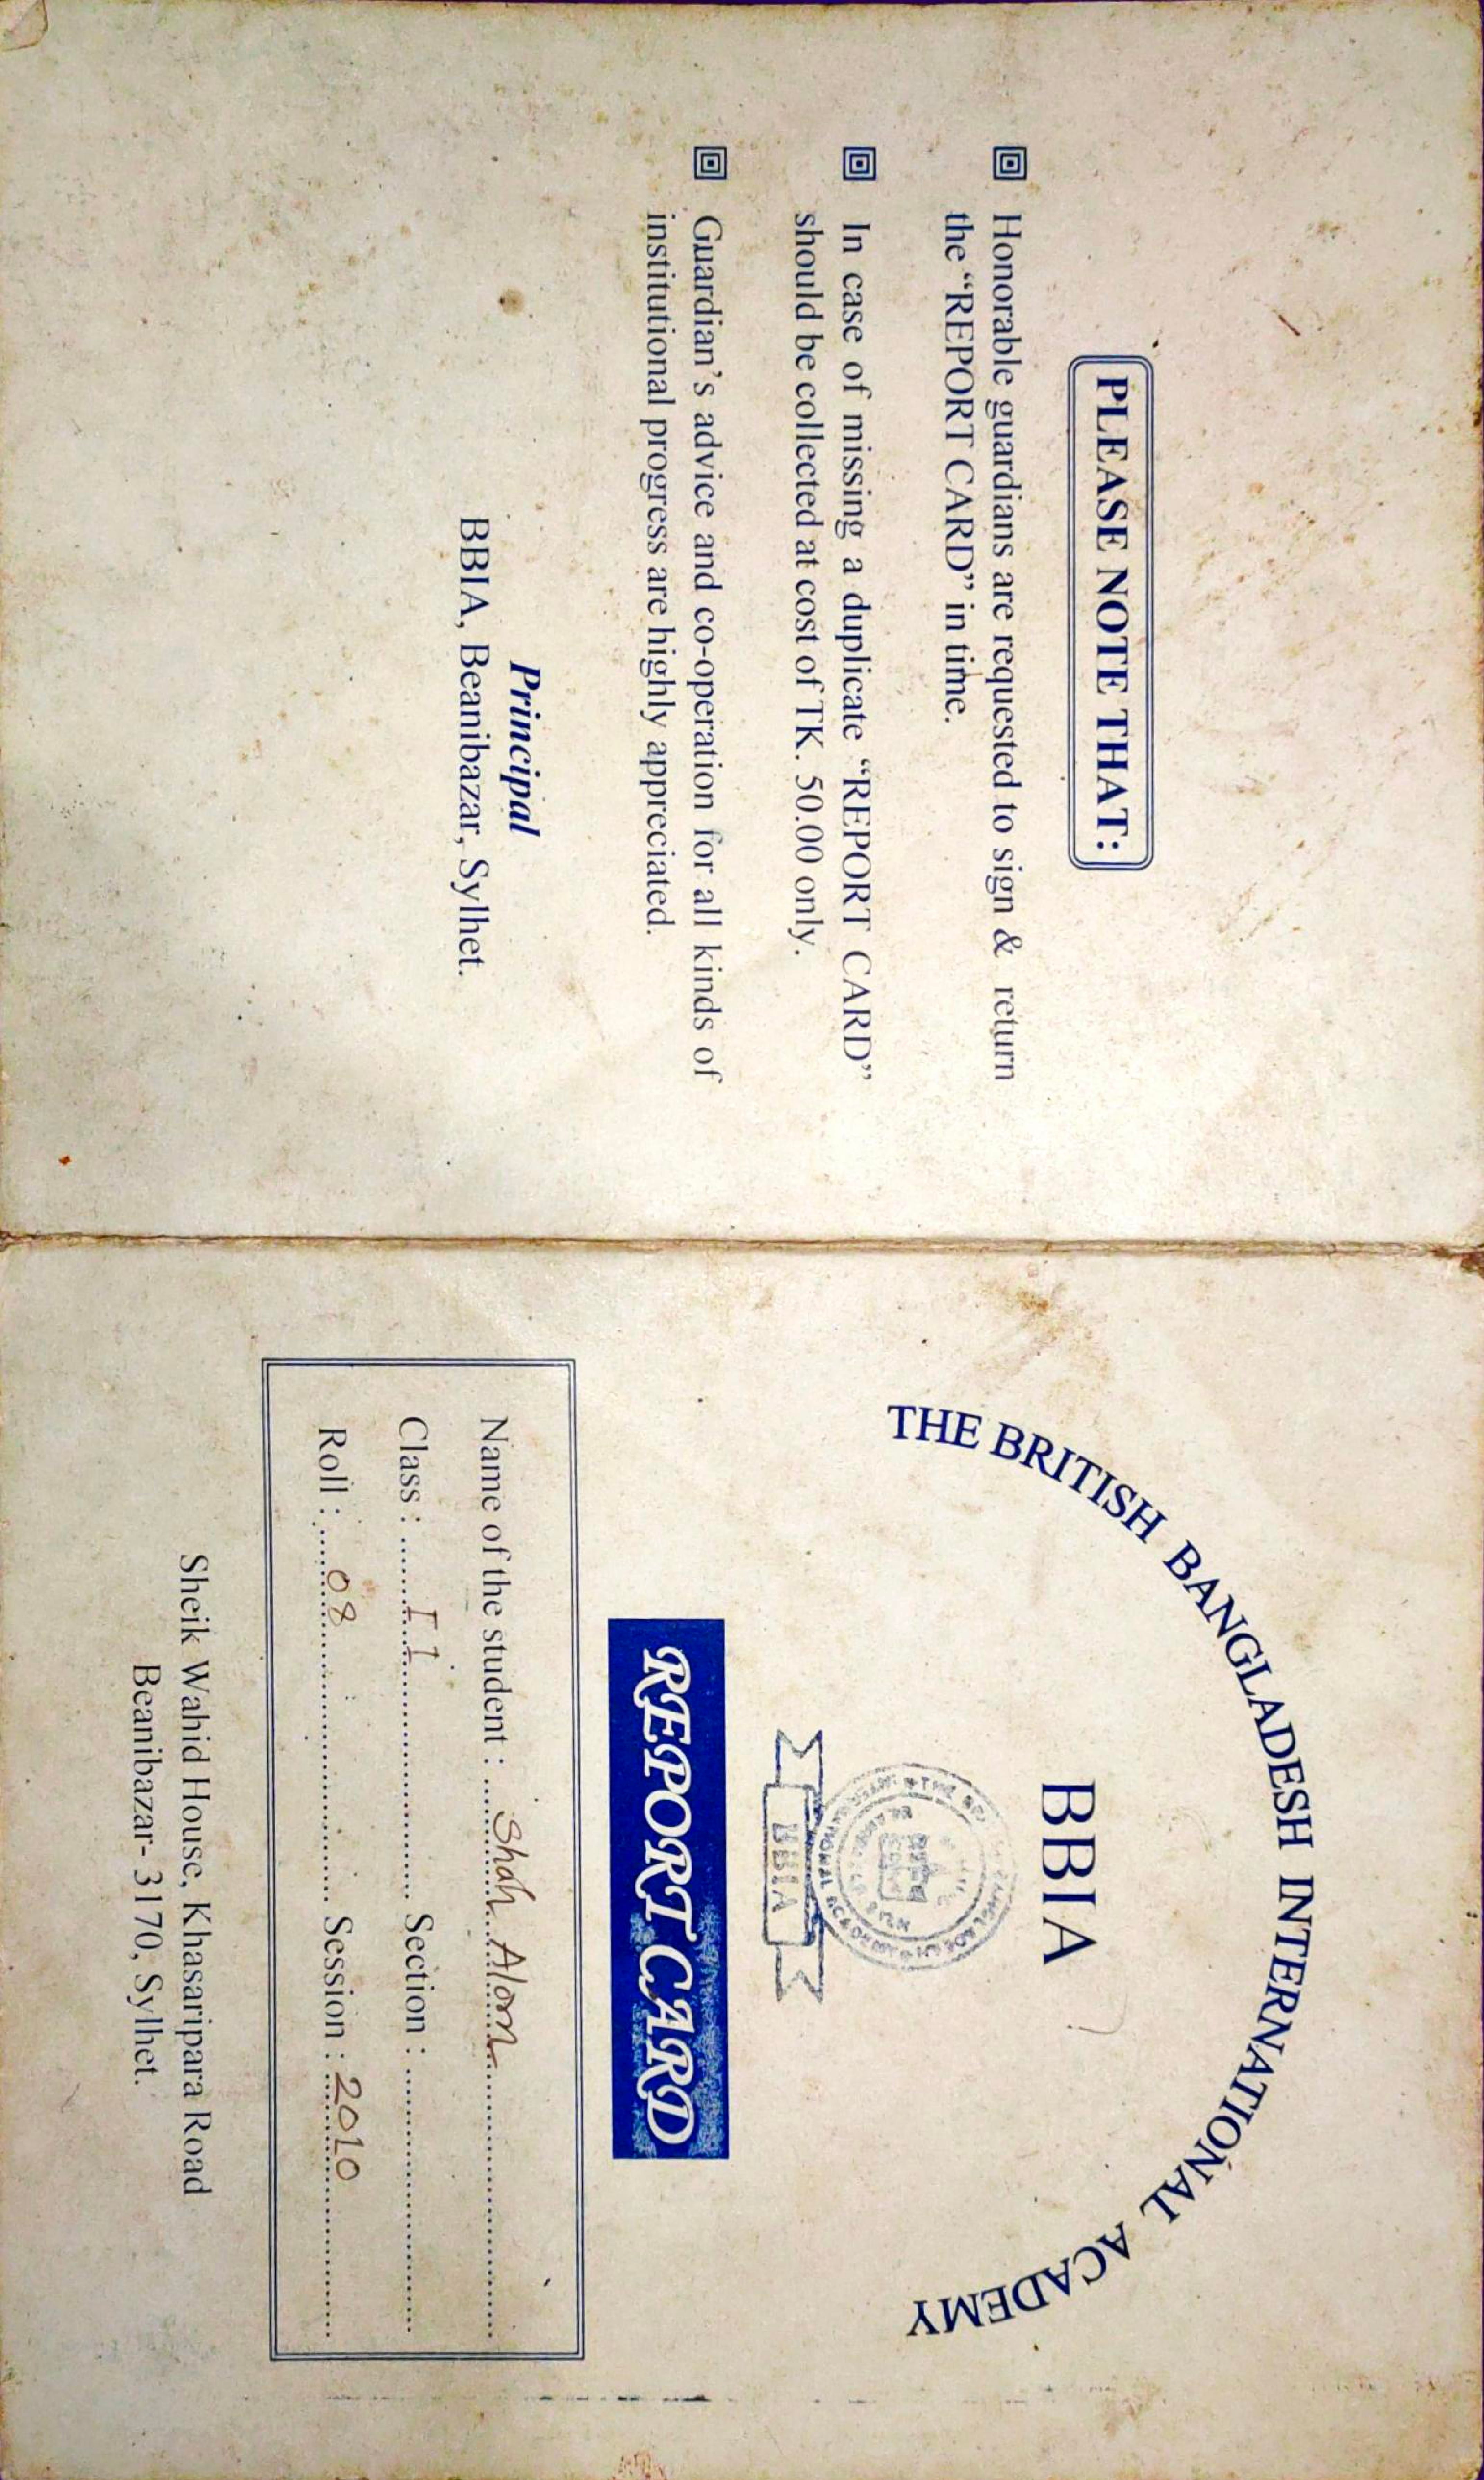 PLEASE NOTE THAT:
Honorable guardians are requested to sign & return
the “REPORT CARD” in time.
In case of missing a duplicate “REPORT CARD”
should be collected at cost of TK. 50.00 only.
Guardian’s advice and co-operation for all kinds of
institutional progress are highly appreciated.
Principal
BBIA, Beanibazar, Sylhet.
THE BRITISH BANGLADESH INTERNATIONAL ACADEMY
BBIA
BBIA
REPORT CARD
Name of the student : Shah Alom
Class : II Section :
Roll : 08 Session : 2010
Sheik Wahid House, Khasaripara Road
Beanibazar- 3170, Sylhet.